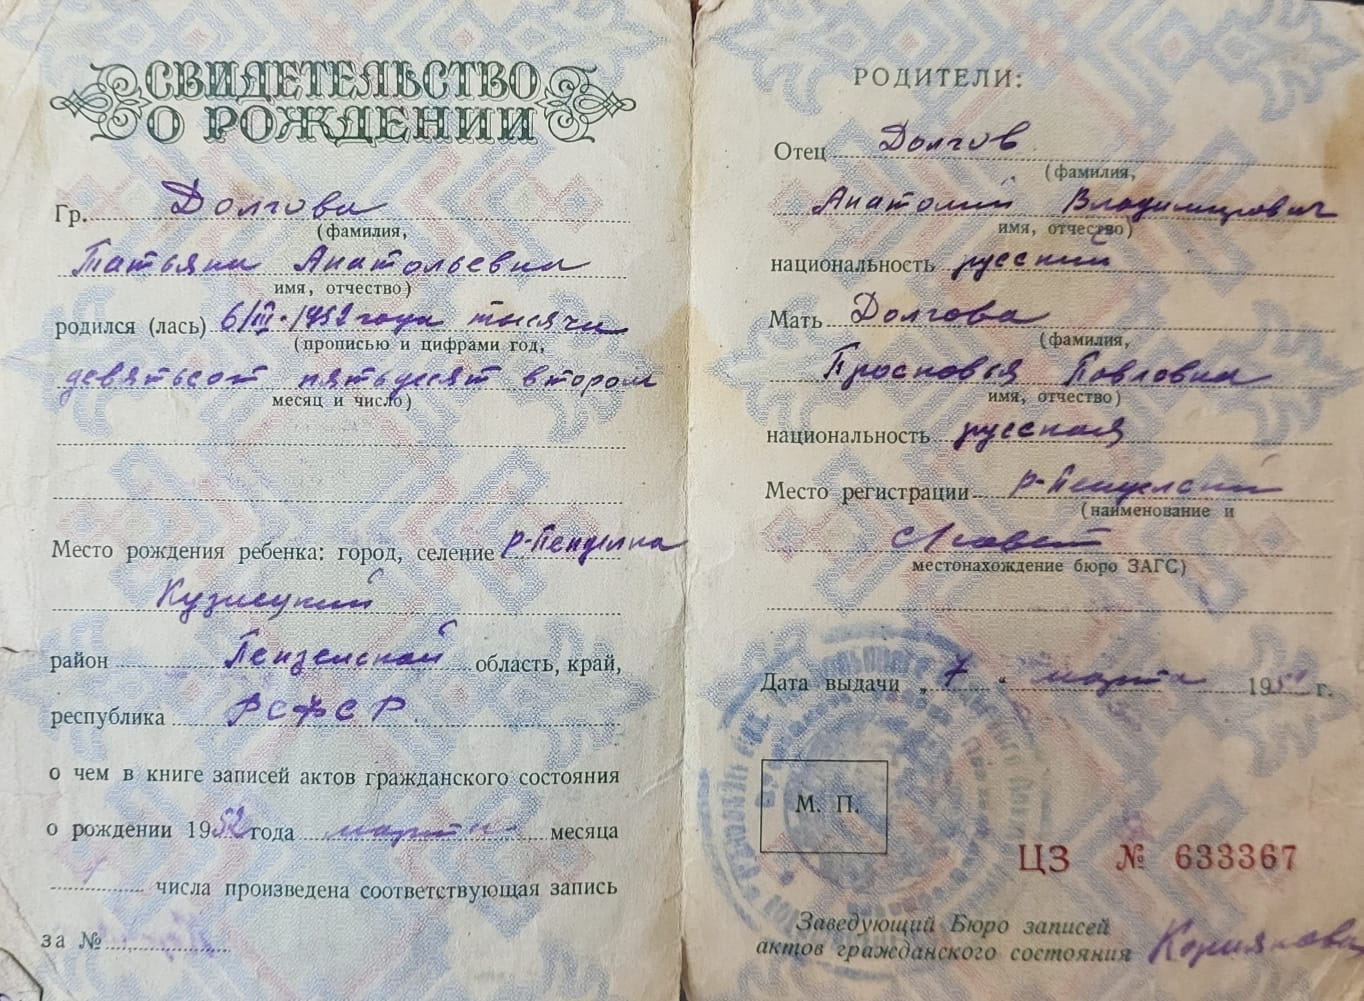 СВИДЕТЕЛЬСТВО
О РОЖДЕНИИ
Гр. Долгова
(фамилия,
Татьяна Анатольевна
имя, отчество)
родился (лась) 6/III-1952 года тысяча
(прописью и цифрами год,
девятьсот пятьдесят втором
месяц и число)
Место рождения ребенка: город, селение
район Пензенской область, край,
республика РСФСР
о чем в книге записей актов гражданского состояния
о рождении 1952 года марта месяца
числа произведена соответствующая запись
за №
РОДИТЕЛИ:
Отец Долгов
(фамилия,
Анатолий Владимирович
имя, отчество)
национальность русский
Мать Долгова
(фамилия,
Прасковья Павловна
имя, отчество)
национальность русская
Место регистрации
(наименование и
местонахождение бюро ЗАГС)
Дата выдачи „7“ марта 195 г.
М. П.
ЦЗ № 633367
Заведующий Бюро записей
актов гражданского состояния